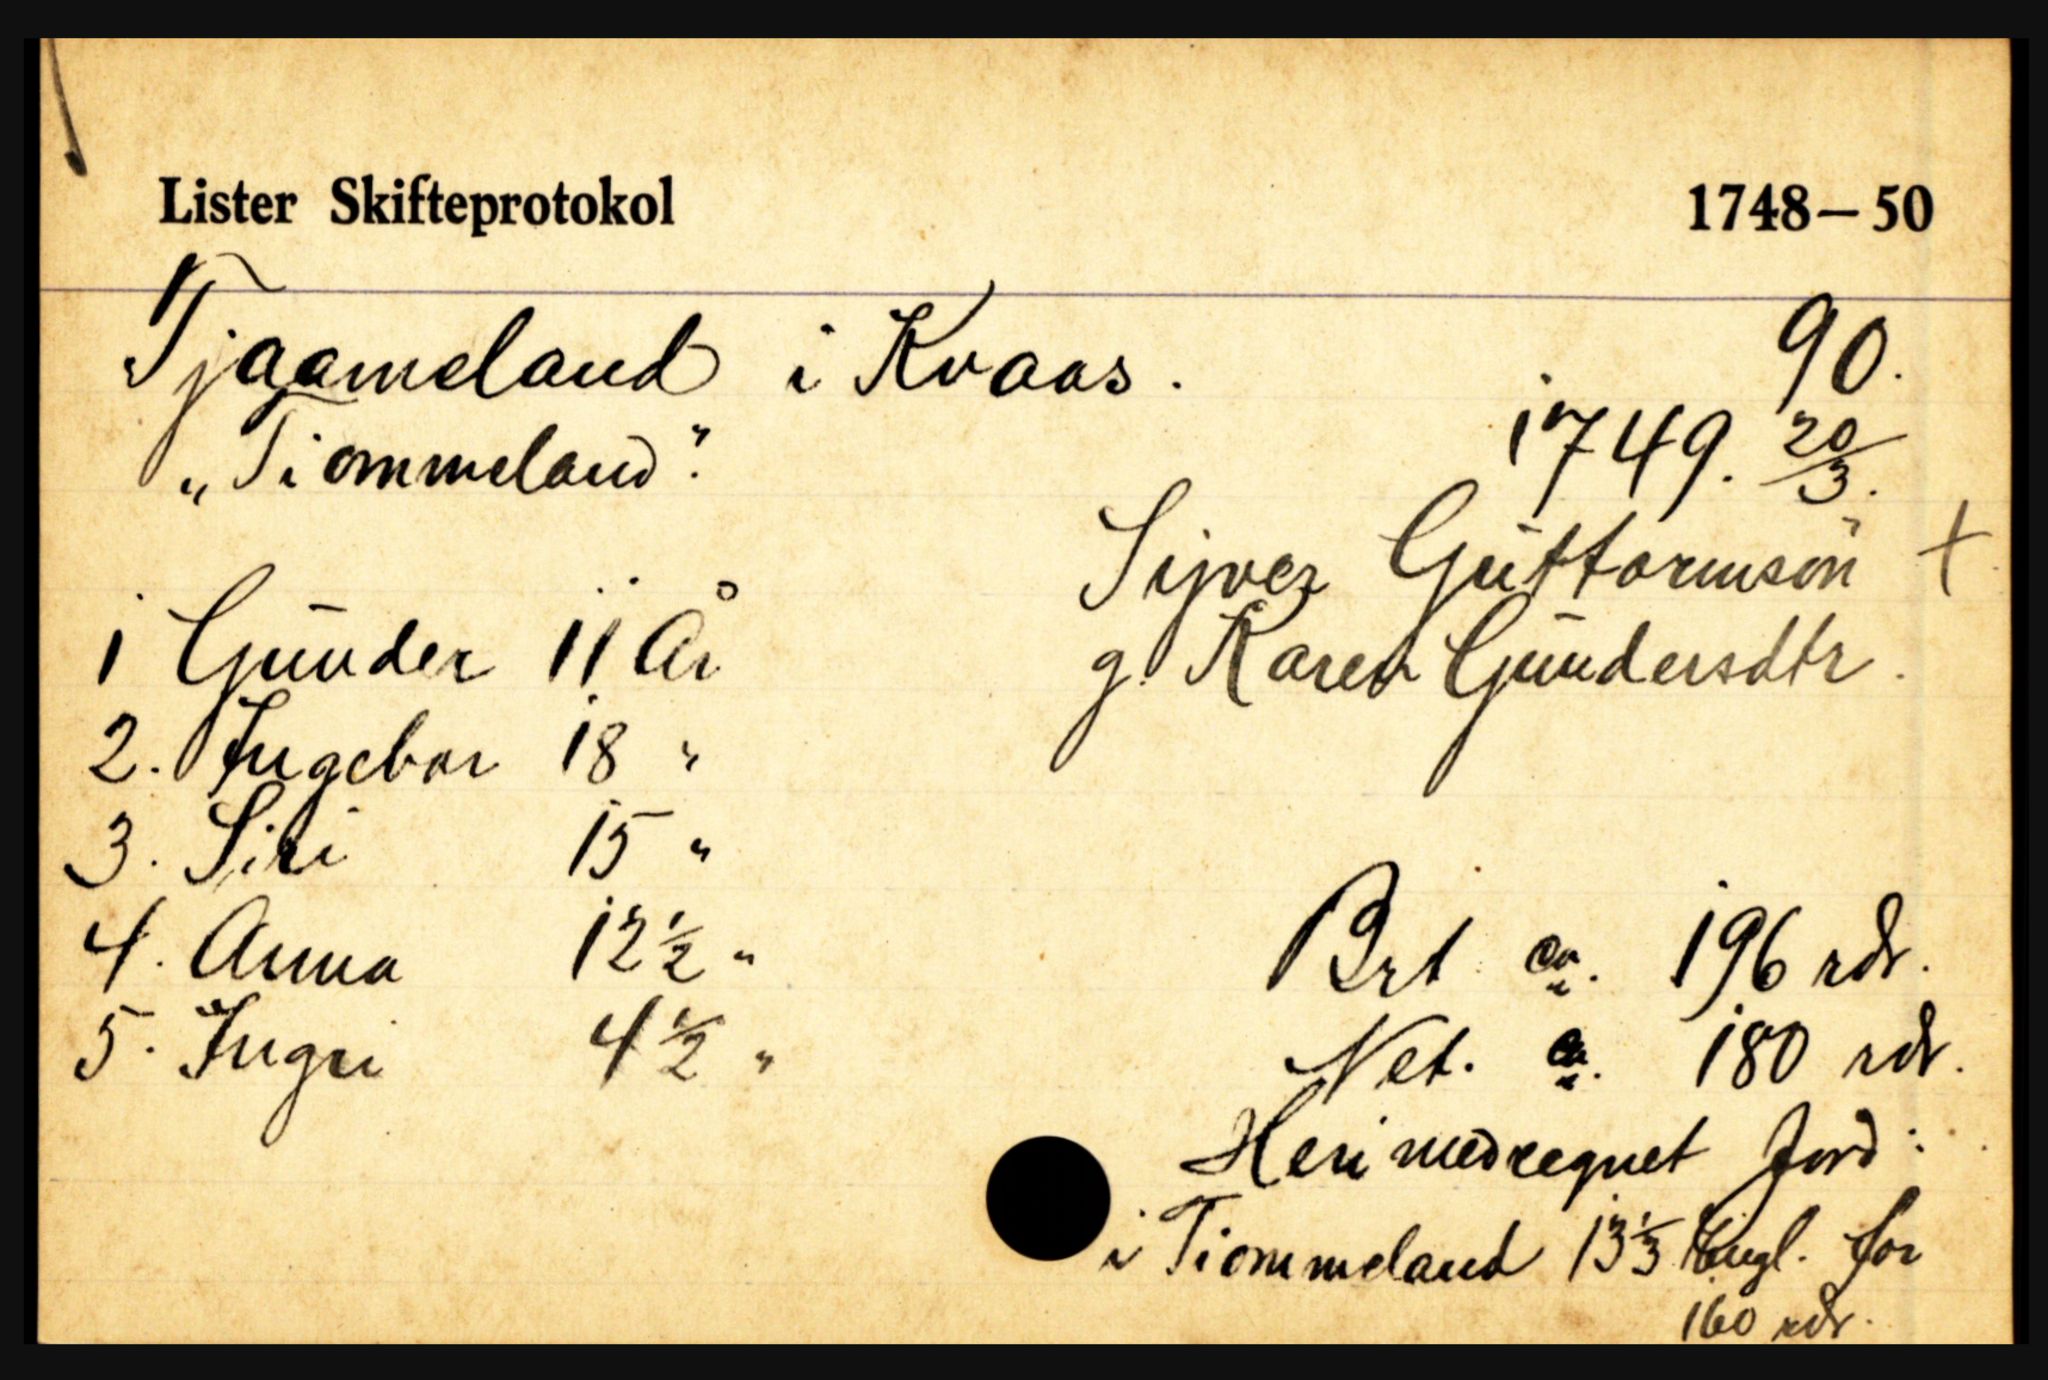 Lister Skifteprotokol 1748–50
Tjaameland i Kvaas. 90.
„Tiommeland". 1749. 20/3.
Sijver Guttormsön +
g. Karen Gundersdtr.
1 Gunder 11 År
2. Ingebor 18 "
3. Siri 15 "
4. Anna 12 1/2 "
5. Ingri 4 1/2 "
Brt ca. 196 rdr.
Net. ca. 180 rdr.
Heri medregnet Jord:
i Tiommeland 13 1/3 Engl. for
160 rdr.